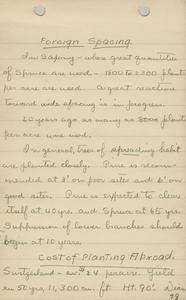 Foreign Spacing.
In Saxony - where great quantities
of Spruce are used - 1800 to 2300 plants
per acre are used. A great reaction
toward wide spacing is in progress.
20 years ago as many as 8000 plants
per acre were used.
In general, trees of spreading habit
are planted closely. Pine is recom-
mended at 3' on poor sites and 6' on
good sites. Pine is expected to clear
itself at 40 yrs. and Spruce at 65 yrs.
Suppression of lower branches should
begin at 10 years.
Cost of Planting Abroad.
Switzerland - av. $24 per acre. Yield
in 50 yrs, 11,300 cu. ft. Ht. 90'. Diam